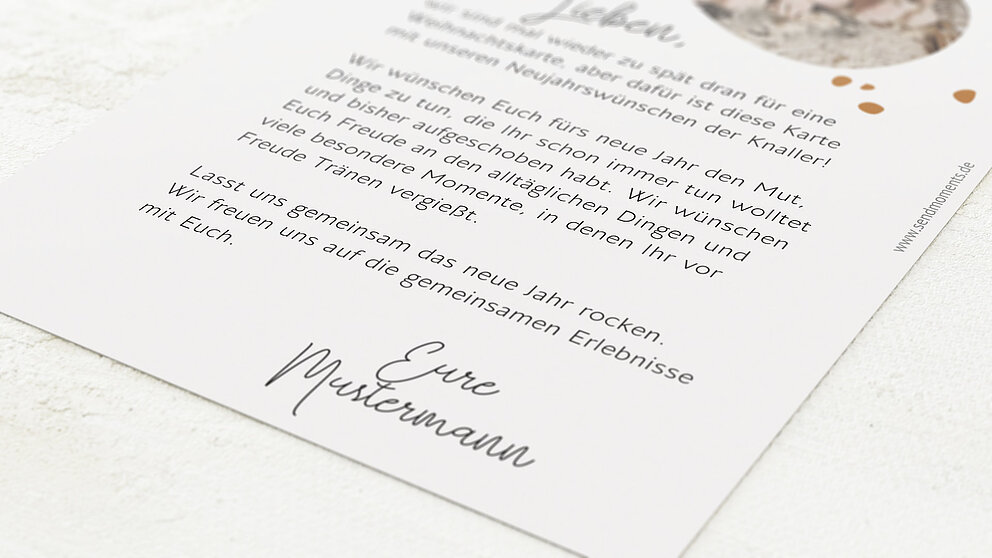 Lieben,
wir sind mal wieder zu spät dran für eine
Weihnachtskarte, aber dafür ist diese Karte
mit unseren Neujahrswünschen der Knaller!
Wir wünschen Euch fürs neue Jahr den Mut,
Dinge zu tun, die Ihr schon immer tun wolltet
und bisher aufgeschoben habt. Wir wünschen
Euch Freude an den alltäglichen Dingen und
viele besondere Momente, in denen Ihr vor
Freude Tränen vergießt.
Lasst uns gemeinsam das neue Jahr rocken.
Wir freuen uns auf die gemeinsamen Erlebnisse
mit Euch.
Eure
Mustermann
www.sendmoments.de